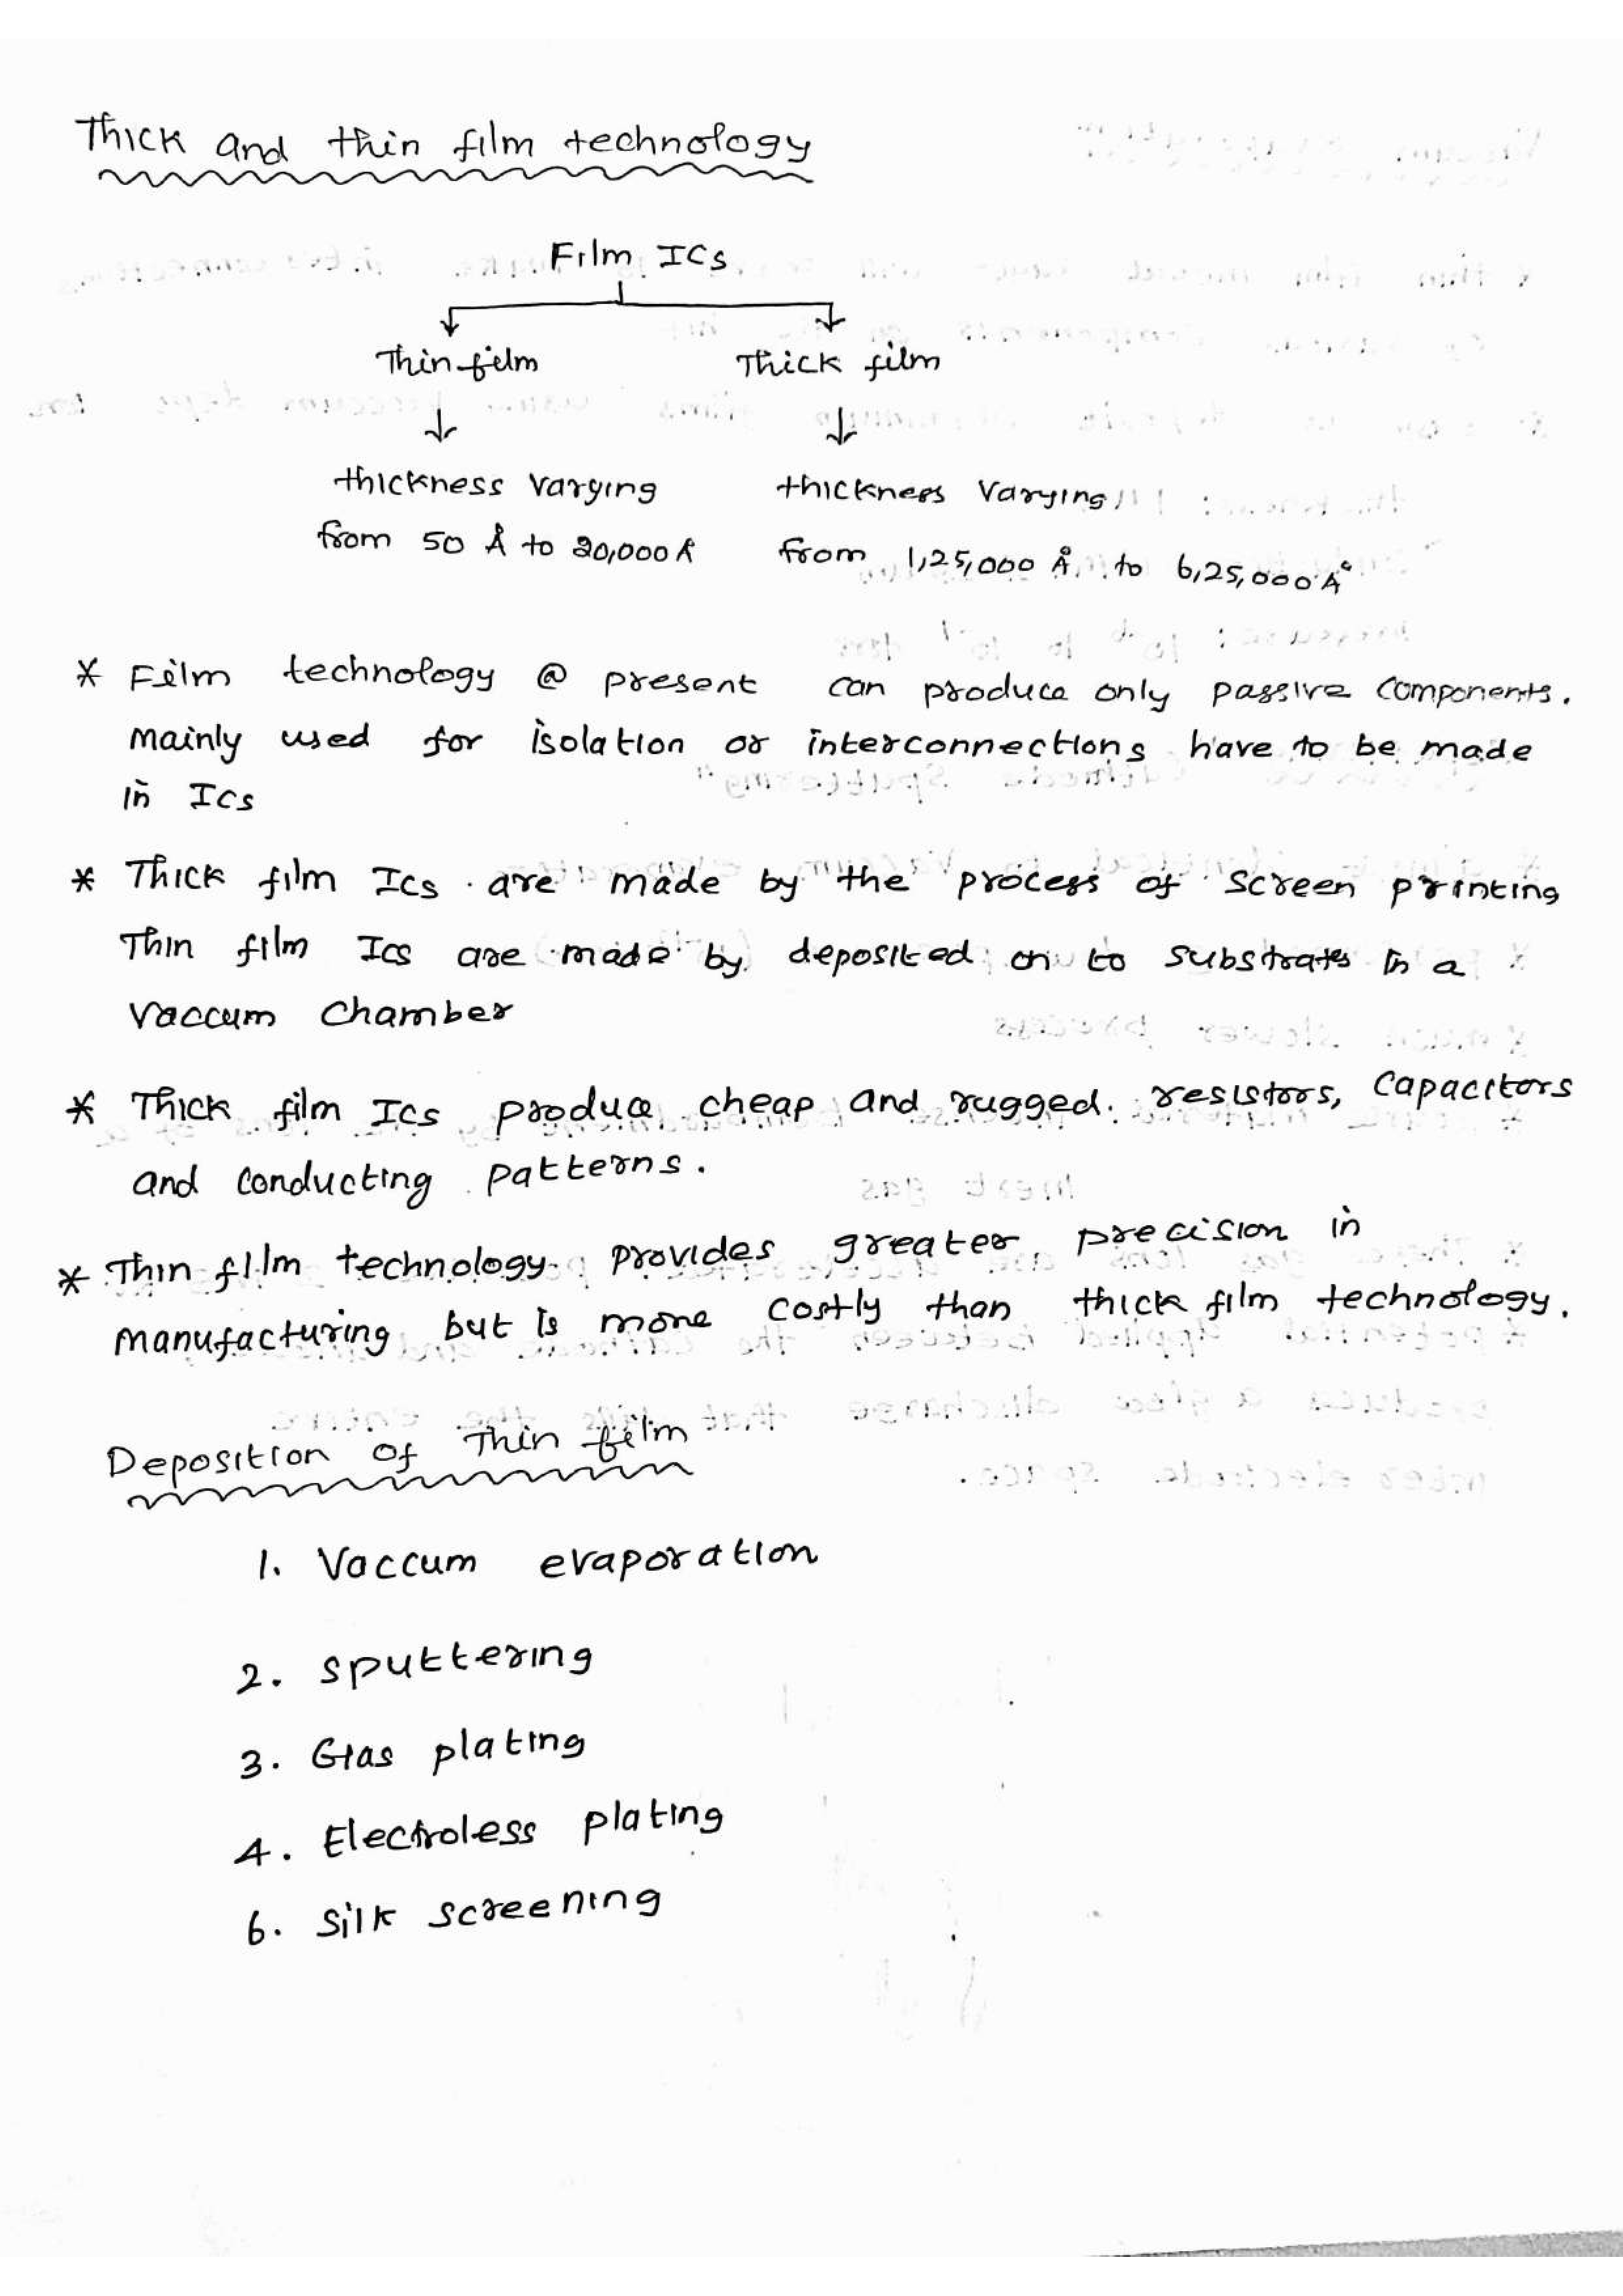 Thick and thin film technology
Film ICs
Thin film Thick film
thickness varying thickness varying
from 50 Å to 20,000 Å from 1,25,000 Å to 6,25,000 A°
* Film technology @ present can produce only passive components.
mainly used for isolation or interconnections have to be made
in ICs
* Thick film ICs are made by the process of screen printing
Thin film ICs are made by deposited on to substrates in a
vaccum chamber
* Thick film ICs produce cheap and rugged. resistors, capacitors
and conducting patterns.
* Thin film technology provides greater precision in
manufacturing but is more costly than thick film technology.
Deposition of Thin film
1. Vaccum evaporation
2. sputtering
3. Gas plating
4. Electroless plating
6. silk screening